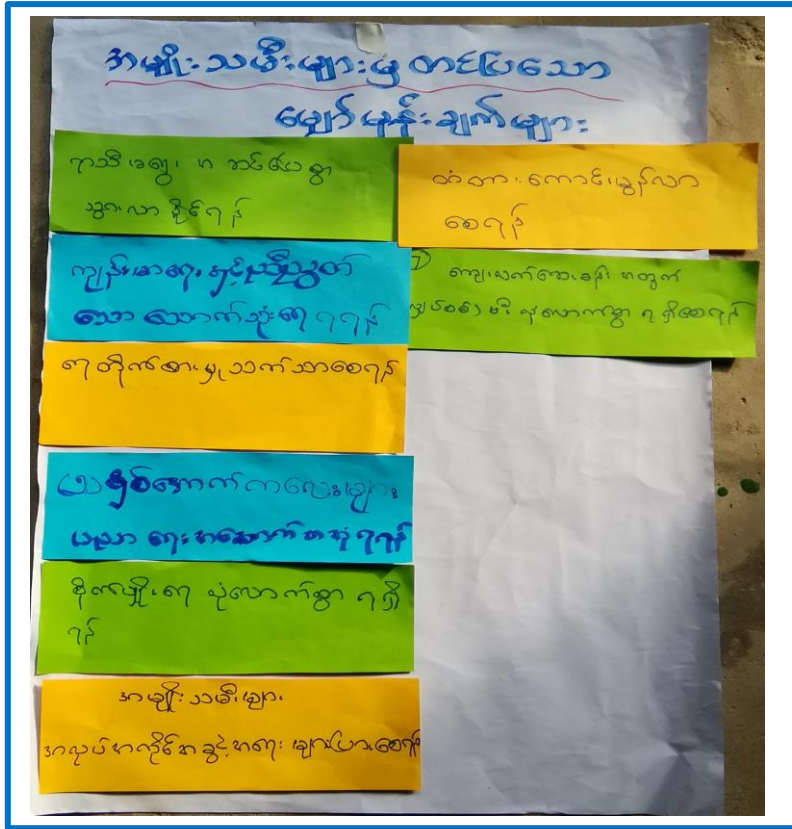 အမျိုးသမီးများမှ တင်ပြသော
မျှော်မှန်းချက်များ
ရာသီမရွေး အဆင်ပြေစွာ
သွားလာနိုင်ရန်
ကျန်းမာရေးနှင့်ညီညွတ်
သော သောက်သုံးရေ ရရန်
ရေတိုက်စားမှုသက်သာစေရန်
အောက်ကလေးများ
ပညာရေးအထောက်အကူရရန်
စိုက်ပျိုးရေ လုံလောက်စွာ ရရှိ
ရန်
အမျိုးသမီးများ
အလုပ်အကိုင်အခွင့်အရေး များပြားစေရန်
တံတားကောင်းမွန်လာ
စေရန်
ကျေးလက်ဆေးခန်းအတွက်
မီး လုံလောက်စွာ ရရှိစေရန်